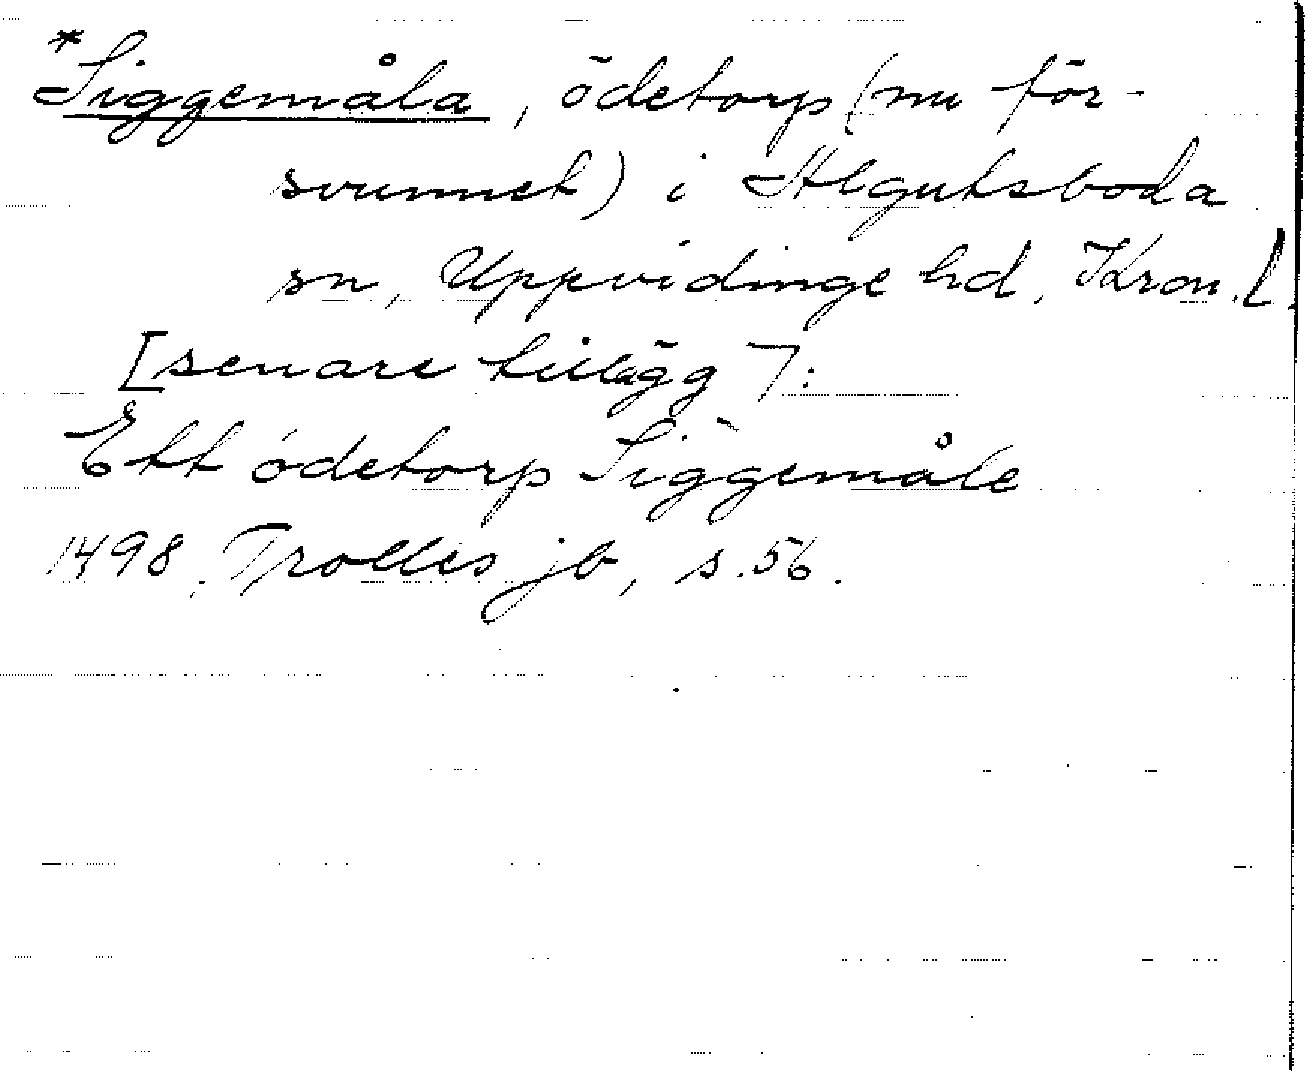 *Siggemåla, ödetorp (nu för-
svunnet) i Algutsboda
sn, Uppvidinge hd, Kron. l.
[senare tillägg]:
Ett ödetorp Siggemåle
1498. Trolles jb, s. 56.